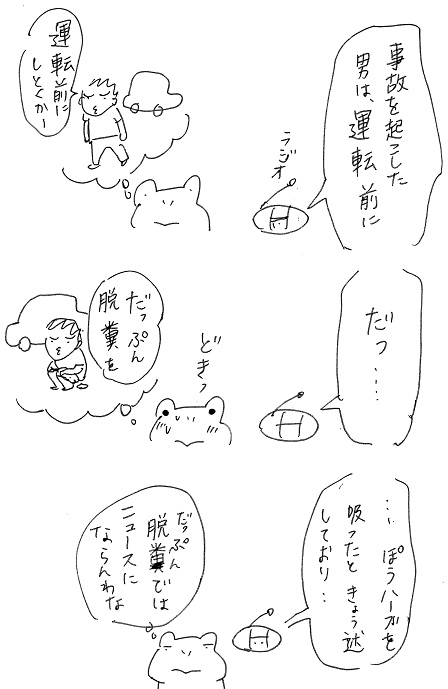 事故を起こした
男は、運転前に
ラジオ
運転前に
しとくかー
だっ……
どきっ
だっぷん
脱糞を
…ぽうハーブを
吸ったときょう述
しており…
だっぷん
脱糞では
ニュースに
ならんわな